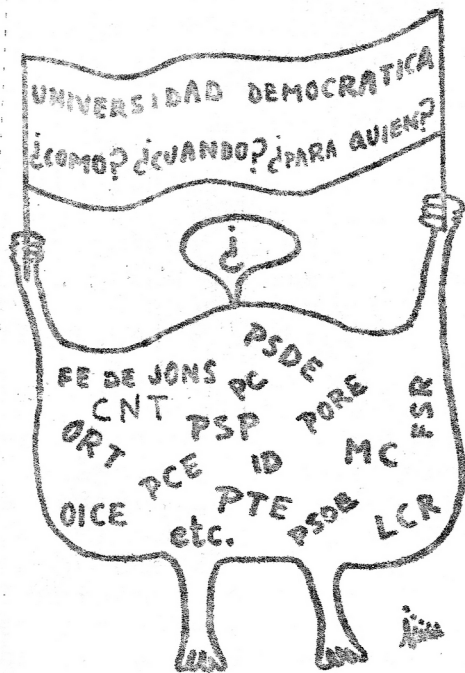 UNIVERSIDAD DEMOCRATICA
¿COMO? ¿CUANDO? ¿PARA QUIEN?
¿
PSDE
FE DE JONS
PC
CNT
PORE
FSR
ORT
PSP
MC
PCE
ID
PTE
OICE
PSOE
LCR
etc.